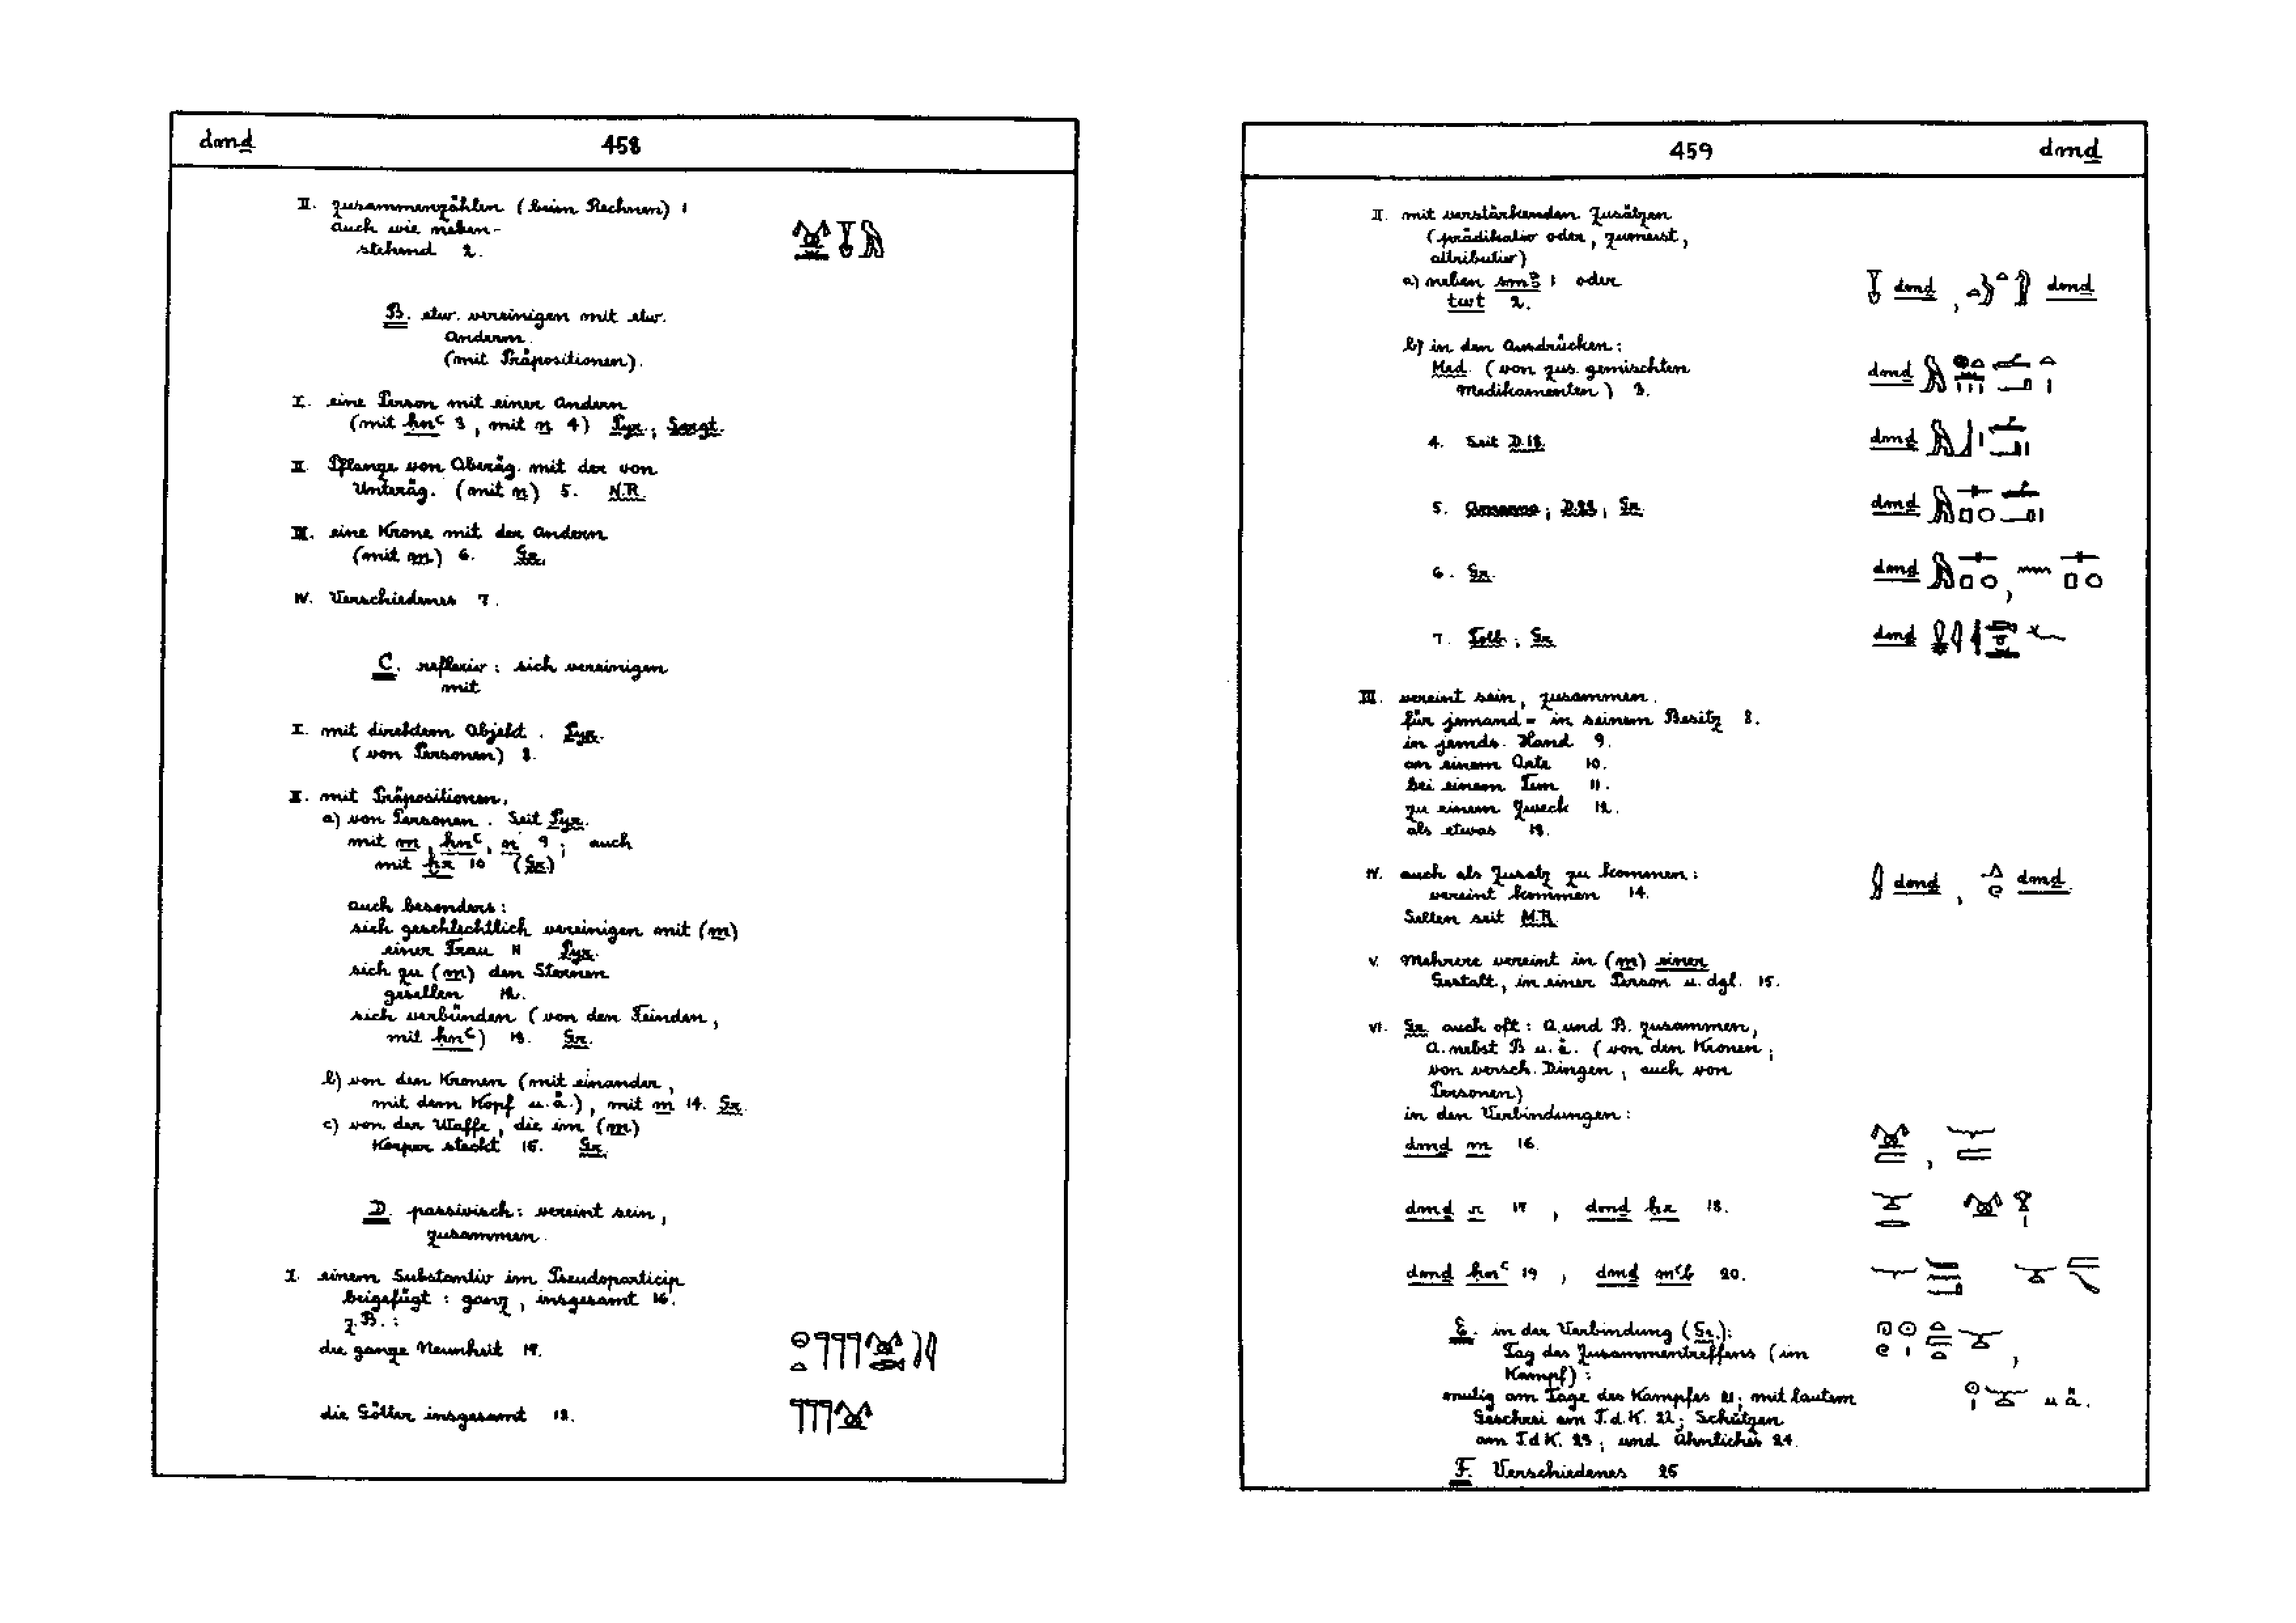 dmḏ 458
II. zusammenzählen (beim Rechnen) 1
auch wie neben-
stehend 2.
B. etw. vereinigen mit etw.
Anderm.
(mit Präpositionen).
I. eine Person mit einer Andern
(mit ḥnꜥ 3, mit n 4) Pyr.; Sargt.
II. Pflanze von Oberäg. mit der von
Unteräg. (mit n) 5. N.R.
III. eine Krone mit der Andern
(mit m) 6. Gr.
IV. Verschiedenes 7.
C. reflexiv: sich vereinigen
mit
I. mit direktem Objekt. Pyr.
(von Personen) 8.
II. mit Präpositionen.
a) von Personen. Seit Pyr.
mit m, ḥnꜥ, n 9; auch
mit ḥr 10 (Gr.)
auch besonders:
sich geschlechtlich vereinigen mit (m)
einer Frau 11 Pyr.
sich zu (m) den Sternen
gesellen 12.
sich verbünden (von den Feinden,
mit ḥnꜥ) 13. Gr.
b) von den Kronen (mit einander,
mit dem Kopf u.ä.), mit m 14. Gr.
c) von der Waffe, die im (m)
Körper steckt 15. Gr.
D. passivisch: vereint sein,
zusammen.
I. einem Substantiv im Pseudoparticip
beigefügt: ganz, insgesamt 16.
z.B.:
die ganze Neunheit 17.
die Götter insgesamt 18.
459 dmḏ
II. mit verstärkenden Zusätzen
(prädikativ oder, zumeist,
attributiv)
a) neben smꜣ 1 oder dmḏ, dmḏ
twt 2.
b) in den Ausdrücken:
Med. (von zus. gemischten dmḏ
Medikamenten) 3.
4. Seit D.18. dmḏ
5. Amarna; D.22; Gr. dmḏ
6. Gr. dmḏ
7. Totb.; Gr. dmḏ
III. vereint sein, zusammen.
für jemand = in seinem Besitz 8.
in jemds. Hand 9.
an einem Orte 10.
bei einem Tun 11.
zu einem Zweck 12.
als etwas 13.
IV. auch als Zusatz zu kommen: dmḏ, dmḏ
vereint kommen 14.
Selten seit M.R.
V. Mehrere vereint in (m) einer
Gestalt, in einer Person u. dgl. 15.
VI. Gr. auch oft: A. und B. zusammen,
A. nebst B u.ä. (von den Kronen;
von versch. Dingen, auch von
Personen)
in den Verbindungen:
dmḏ m 16.
dmḏ r 17, dmḏ ḥr 18.
dmḏ ḥnꜥ 19, dmḏ mꜥb 20.
E. in der Verbindung (Gr.):
Tag des Zusammentreffens (im
Kampf):
mutig am Tage des Kampfes 21; mit lautem u.ä.
Geschrei am T.d.K. 22; Schützen
am T.d.K. 23; und Ähnliches 24.
F. Verschiedenes 25